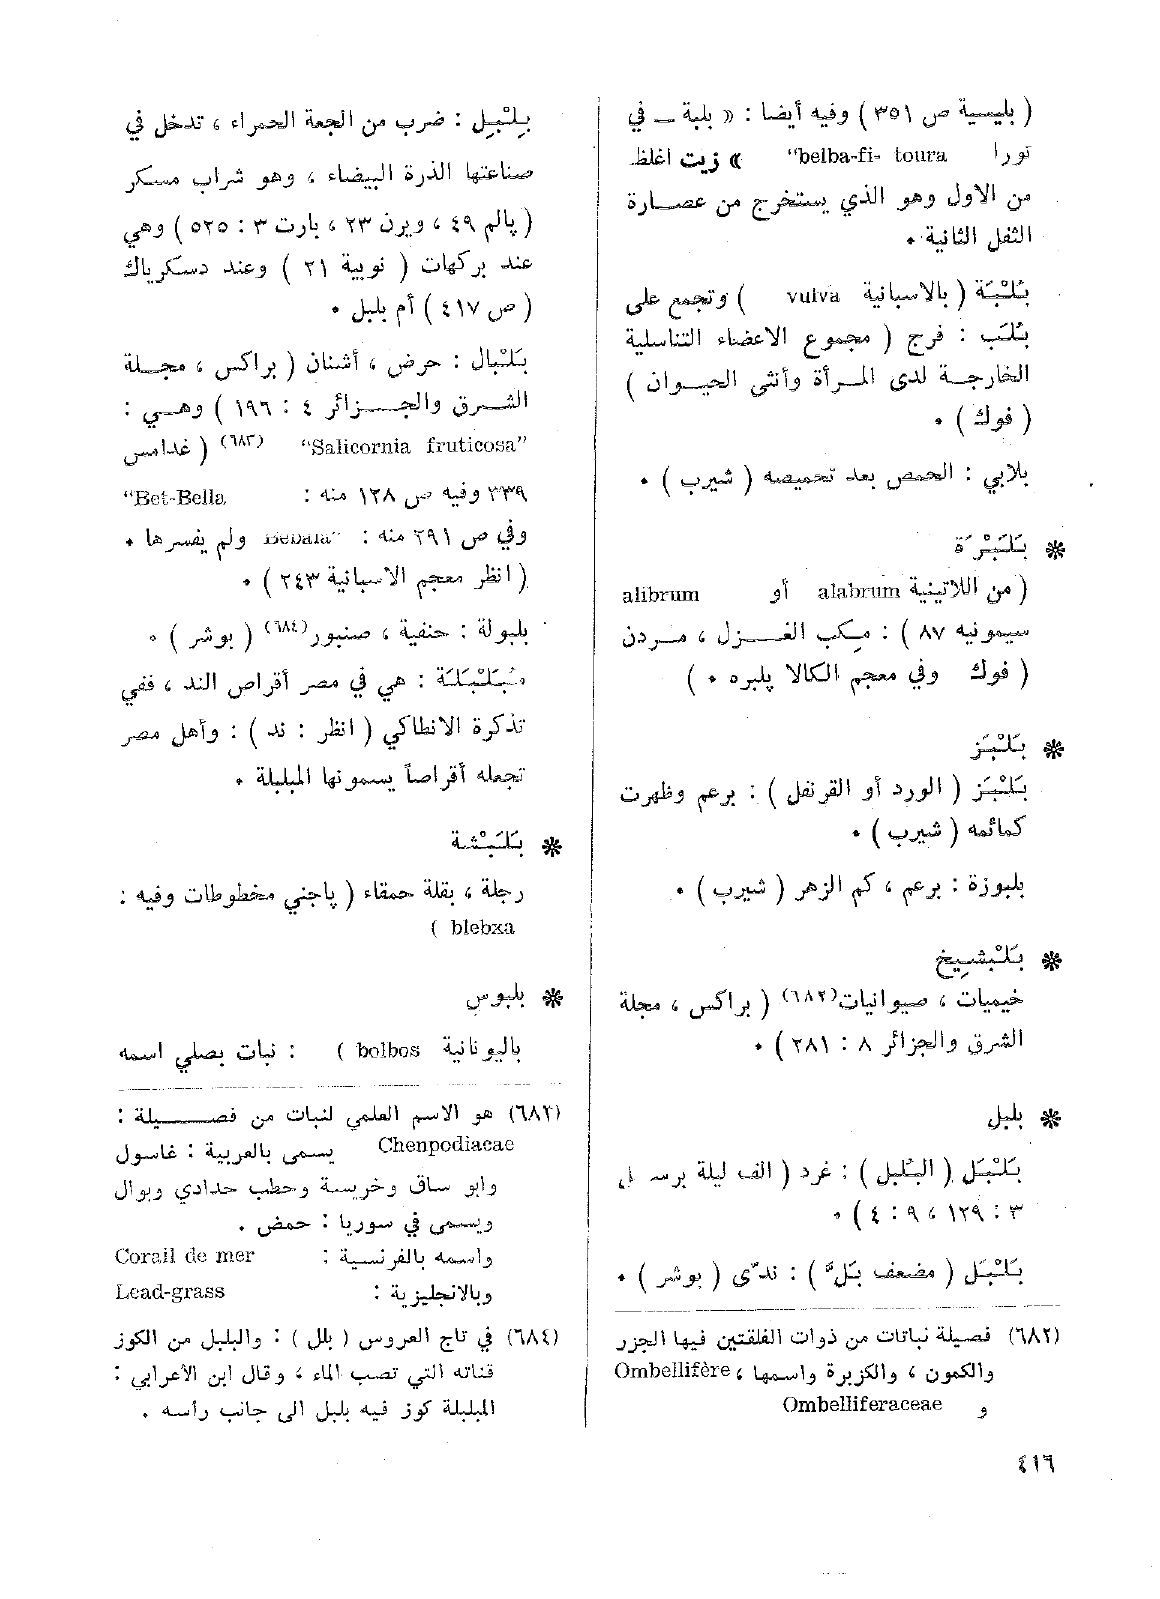 ( بليسية ص ٣٥١ ) وفيه أيضا : « بلبة ــ في
تورا belba-fi- toura" » زيت اغلظ
من الاول وهو الذي يستخرج من عصــارة
الثفل الثانية ٠
بُلْبَة ( بالاسبانية vulva ) وتجمع على
بُلَب : فرج ( مجموع الاعضاء التناسلية
الخارجــة لدى المــرأة وأنثى الحيــوان )
( فوك ) ٠
بلابي : الحمص بعد تحميصه ( شيرب ) ٠
❋ بَلَبْرَة
( من اللاتينية alabrum أو alibrum
سيمونيه ٨٧ ) : مِكب الغــــزل ، مــردن
( فوك وفي معجم الكالا پلبره ٠ )
❋ بَلْبَز
بَلْبَز ( الورد أو القرنفل ) : برعم وظهرت
كمائمه ( شيرب ) ٠
بلبوزة : برعم ، كم الزهر ( شيرب ) ٠
❋ بَلْبشِيخ
خيميات ، صيوانيات(٦٨٢) ( براكس ، مجلة
الشرق والجزائر ٨ : ٢٨١ ) ٠
❋ بلبل
بَلْبَل ( البُلبل ) : غرد ( الف ليلة برسل
٣ : ١٢٩ ، ٩ : ٤ ) ٠
بَلْبَل ( مضعف بَلّ ) : ندّى ( بوشر ) ٠
(٦٨٢) فصيلة نباتات من ذوات الفلقتين فيها الجزر
والكمون ، والكزبرة واسمها ، Ombellifère
و Ombelliferaceae
بِلْبِل : ضرب من الجعة الحمراء ، تدخل في
صناعتها الذرة البيضاء ، وهو شراب مسكر
( پالم ٤٩ ، ويرن ٢٣ ، بارت ٣ : ٥٢٥ ) وهي
عند بركهات ( نوبية ٢١ ) وعند دسكرياك
( ص ٤١٧ ) أم بلبل ٠
بَلْبال : حرض ، أشنان ( براكس ، مجــلة
الشــرق والجــــزائر ٤ : ١٩٦ ) وهــي :
"Salicornia fruticosa" (٦٨٣) ( غدامس
٣٣٩ وفيه ص ١٢٨ منه : "Bet-Bella
وفي ص ٢٩١ منه : Bebala" ولم يفسرها ٠
( انظر معجم الاسبانية ٢٤٣ ) ٠
بلبولة : حنفية ، صنبور(٦٨٤) ( بوشر ) ٠
مُبَلْبَلَة : هي في مصر أقراص الند ، ففي
تذكرة الانطاكي ( انظر : ند ) : وأهل مصر
تجعله أقراصاً يسمونها المبلبلة ٠
❋ بَلَبْشة
رجلة ، بقلة حمقاء ( پاجني مخطوطات وفيه :
blebxa )
❋ بلبوس
باليونانية bolbos ) : نبات بصلي اسمه
(٦٨٣) هو الاسم العلمي لنبات من فصـــــيلة :
Chenpodiacae يسمى بالعربية : غاسول
وابو ساق وخريسة وحطب حدادي وبوال
ويسمى في سوريا : حمض .
واسمه بالفرنسية : Corail de mer
وبالانجليزية : Lead-grass
(٦٨٤) في تاج العروس ( بلل ) : والبلبل من الكوز
قناته التي تصب الماء ، وقال ابن الأعرابي :
البلبلة كوز فيه بلبل الى جانب رأسه .
٤١٦